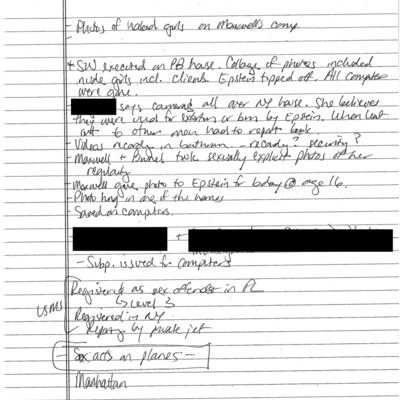 - Photos of naked girls on Maxwell's comp.
+ SW executed on PB house. Collage of photos included
nude girls incl. clients. Epstein tipped off. All computers
were gone.
says cameras all over NY house. She believes
they were used for extortion or bm by Epstein. When lent
out to other men had to report back.
- Videos recording in bathroom - recording? security?
- Maxwell + took sexually explicit photos of her
regularly
- Maxwell gave photo to Epstein for bday @ age 16.
- Photo hung in one of the homes
- Saved on computers.
+
- Subp. issued for computers
Registered as sex offender in FL
↳ Level 3
USMS
Registered in NY
by private jet
- Sex acts on planes -
Manhattan